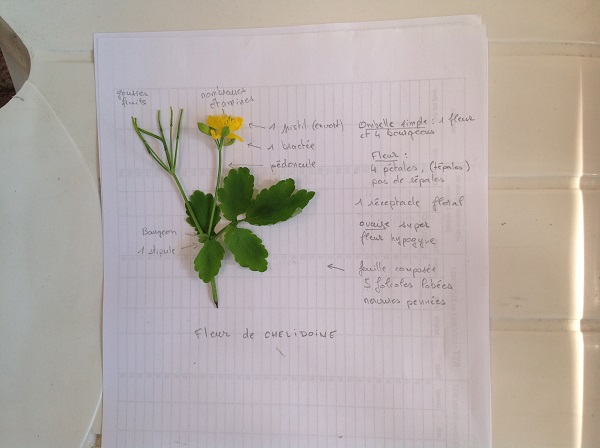 gousses
fruits
nombreuses
étamines
1 pistil (overt)
1 bractée
pédoncule
Bourgeon
1 stipule
Ombelle simple : 1 fleur
et 4 bourgeons
Fleur :
4 pétales, (tépales)
pas de sépales
1 réceptacle floral
ovaire super
fleur hypogyne
feuille composée
5 folioles lobées
nervures pennées
Fleur de CHELIDOINE